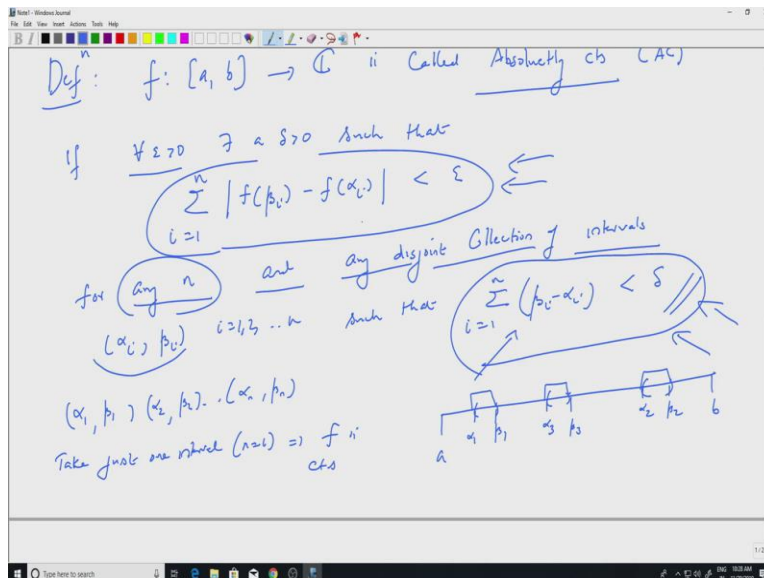 Note1 - Windows Journal
File Edit View Insert Actions Tools Help
Defⁿ: f: [a, b] → ℂ is called Absolutely cts (AC)
If ∀ ε>0 ∃ a δ>0 such that
∑_{i=1}^{n} | f(β_i) - f(α_i) | < ε
for any n and any disjoint Collection of intervals
(α_i, β_i) i=1,2, .. n such that ∑_{i=1}^{n} (β_i - α_i) < δ
(α_1, β_1) (α_2, β_2) .. (α_n, β_n)
Take just one interval (n=1) => f is
cts
a α_1 β_1 α_3 β_3 α_2 β_2 b
Type here to search
ENG 10:28 AM